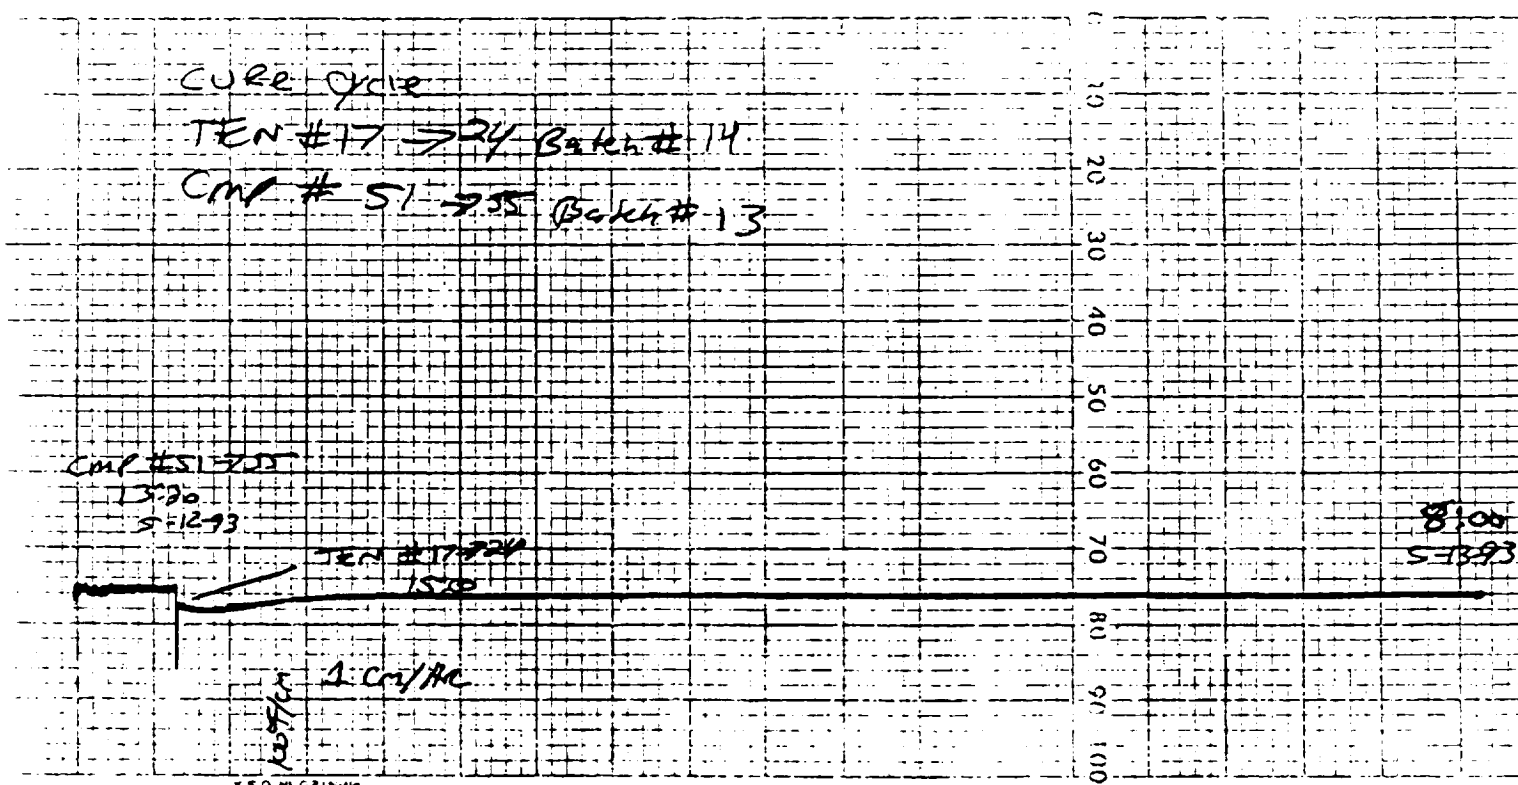 CURE cycle
TEN #17 → 24 Batch # 14
Cmp # 51 → 55 Batch # 13
0
10
20
30
40
50
60
70
80
90
100
Cmp #51→55
5-12-93
TEN #17→24
8:00
5-13-93
1 cm/HR
100°F/cm